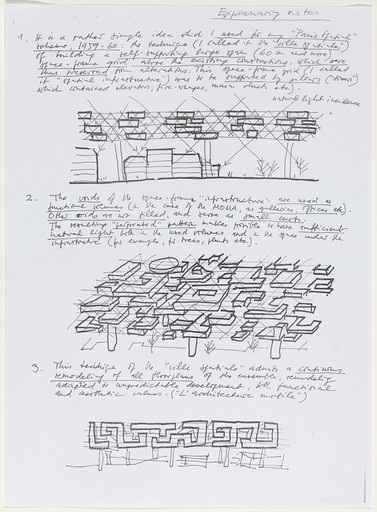 Explanatory notes.
1. It is a rather simple idea which I used for my "Paris Spatial"
scheme, 1959-60: the technique (I called it the "ville spatiale")
of building a self-supporting large span (60 m and more)
space-frame grid above the existing constructions, which were
thus preserved from alterations. This space-frame grid (I called
it "spatial infrastructure") was to be supported by pillars ("trees")
which contained elevators, fire-escapes, main ducts etc).
natural light incidence
2. The voids of the space-frame "infrastructure" are used as
functional volumes (in the case of the MOMA, as galleries, offices etc).
Other voids are not filled, and serve as small courts.
The resulting "perforated" pattern makes possible to have sufficient
natural light both in the used volumes and in the space under the
infrastructure (for example, to trees, plants etc).
3. This technique of the "ville spatiale" admits a continuous
remodeling of all floorplans of the ensemble, remodeling
adapted to unpredictable development, both functional
and aesthetic values. ("L'architecture mobile")